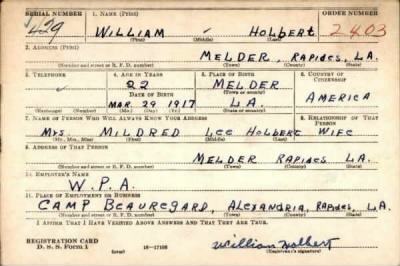 SERIAL NUMBER 1. NAME (Print) ORDER NUMBER
429 WILLIAM - HOLBERT 2403
(First) (Middle) (Last)
2. ADDRESS (Print)
MELDER, RAPIDES, LA.
(Number and street or R. F. D. number) (Town) (County) (State)
3. TELEPHONE 4. AGE IN YEARS 5. PLACE OF BIRTH 6. COUNTRY OF CITIZENSHIP
22 MELDER
DATE OF BIRTH (Town or county)
MAR. 29 1917 LA. AMERICA
(Exchange) (Number) (Mo.) (Day) (Yr.) (State or country)
7. NAME OF PERSON WHO WILL ALWAYS KNOW YOUR ADDRESS 8. RELATIONSHIP OF THAT PERSON
Mrs. MILDRED Lee HOLBERT WIFE
(Mr., Mrs., Miss) (First) (Middle) (Last)
9. ADDRESS OF THAT PERSON
MELDER RAPIDES LA.
(Number and street or R. F. D. number) (Town) (County) (State)
10. EMPLOYER'S NAME
W.P.A.
11. PLACE OF EMPLOYMENT OR BUSINESS
CAMP BEAUREGARD, ALEXANDRIA, RAPIDES, LA.
(Number and street or R. F. D. number) (Town) (County) (State)
I AFFIRM THAT I HAVE VERIFIED ABOVE ANSWERS AND THAT THEY ARE TRUE.
REGISTRATION CARD
D. S. S. Form 1 (over) 16-17105 William Holbert
(Registrant's signature)